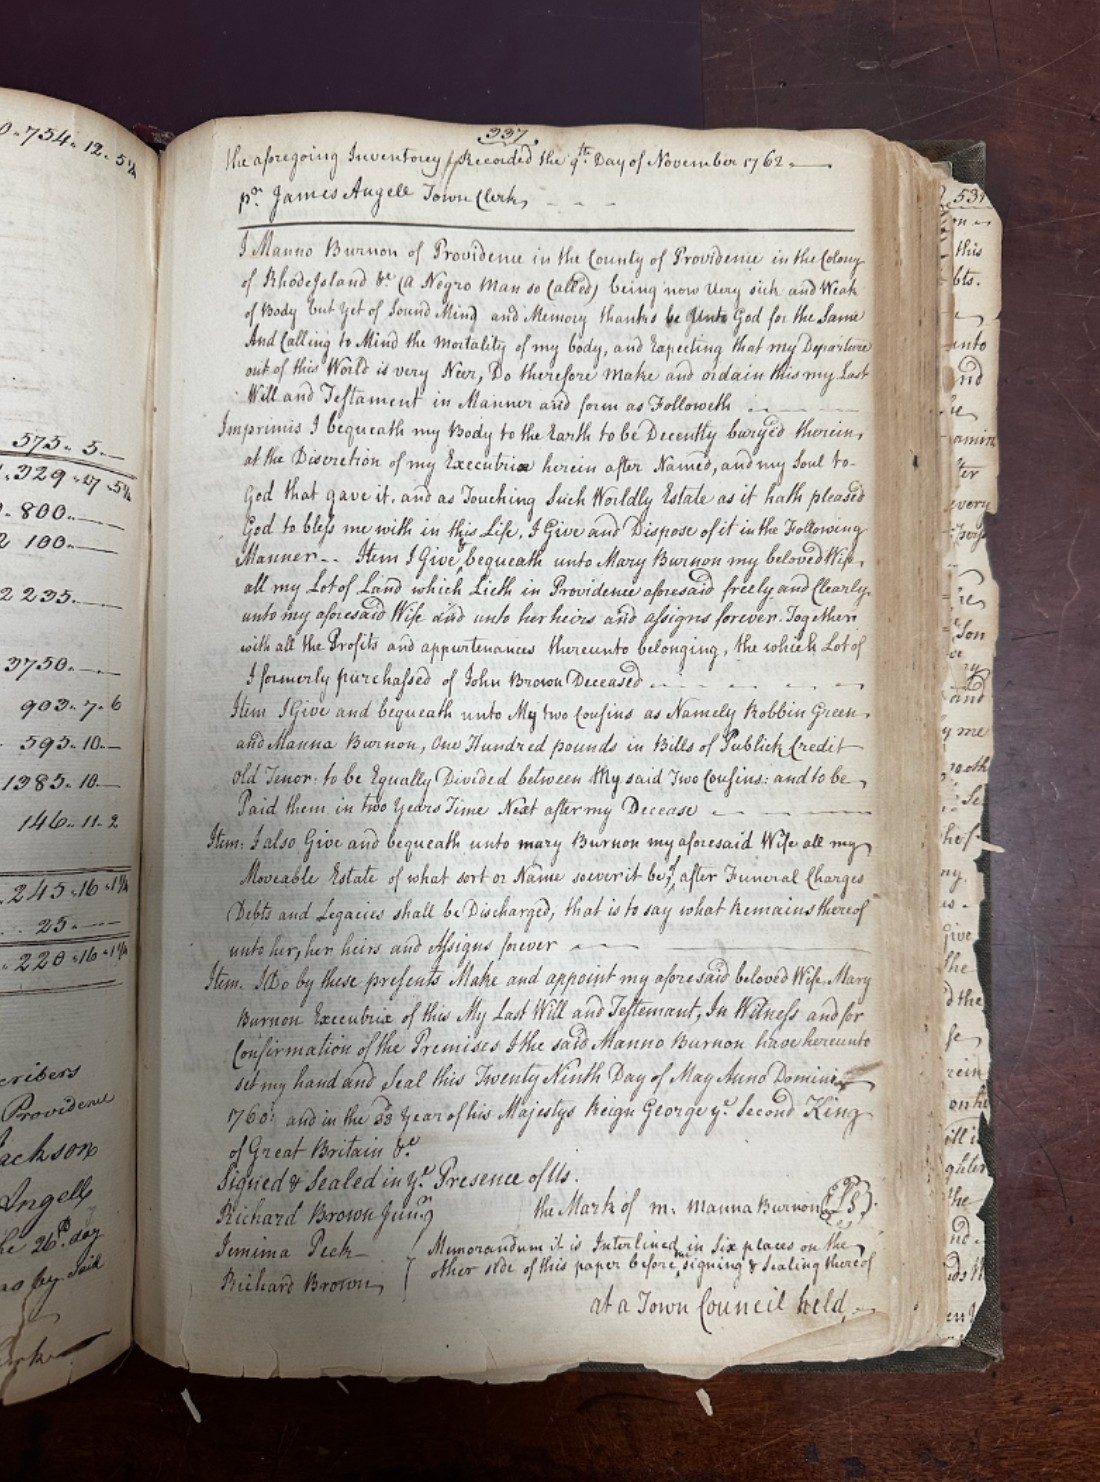 0. 754. 12. 5¼
575. 5. —
. 329. 17. 5¼
0. 800. —
2 100. —
2 235. —
3750. —. —
903. 7. 6
595. 10. —
1385. 10. —
146. 11. 2
. 245. 16. 1¼
. . 25. —. —
. 220. 16. 1¼
cribers
Providence
ackson
Angell
he 26th. day
by said
337.
the aforegoing Inventorey Recorded the 9th. Day of November 1762. —
pr. James Angell Town Clerk, - - -
I Manno Burnon of Providence in the County of Providence in the Colony
of Rhode Island &c (a Negro Man so Called) being now Very sick and Weak
of Body but yet of Sound Mind and Memory thanks be Unto God for the Same
And Calling to Mind the Mortality of my body, and Expecting that my Departure
out of this World is very Neer, Do therefore Make and ordain this my Last
Will and Testament in Manner and form as Followeth
Imprimis I bequeath my Body to the Earth to be Decently buryed therein,
at the Discretion of my Executrix herein after Named, and my Soul to-
God that gave it, and as Touching Such Worldly Estate as it hath pleased
God to bless me with in this Life, I Give and Dispose of it in the Following
Manner - - Item I Give & bequeath unto Mary Burnon my beloved Wife,
all my Lot of Land which Lieth in Providence aforesaid freely and Clearly
unto my aforesaid Wife and unto her heirs and assigns forever. Together
with all the Profits and appurtenances thereunto belonging, the which Lot of
I formerly purchassed of John Brown Deceased
Item I Give and bequeath unto My two Cousins as Namely Robbin Green
and Manna Burnon, One Hundred pounds in Bills of Publick Credit
old Tenor: to be Equally Divided between thy said Two Cousins: and to be
Paid them in two Years Time Next after my Decease
Item: I also Give and bequeath unto mary Burnon my aforesaid Wife all my
Moveable Estate of what sort or Name soever it be, after Funeral Charges
Debts and Legacies shall be Discharged, that is to say what Remains thereof
unto her, her heirs and Assigns forever
Item. I Do by these presents Make and appoint my aforesaid beloved Wife, Mary
Burnon Executrix of this My Last Will and Testemant, In Witness and for
Confirmation of the Premises I the said Manno Burnon have hereunto
set my hand and Seal this Twenty Ninth Day of May Anno Domini
1760: and in the 33d Year of his Majestys Reign George ye. Second King
of Great Britain &c
Signed & Sealed in ye. Presence of Us.
Richard Brown Junr. the Mark of m: Manna Burnon (LS)
Jemima Peck Memorandum it is Interlined in Six places on the
Richard Brown, other side of this paper before signing & Sealing thereof
at a Town Council held